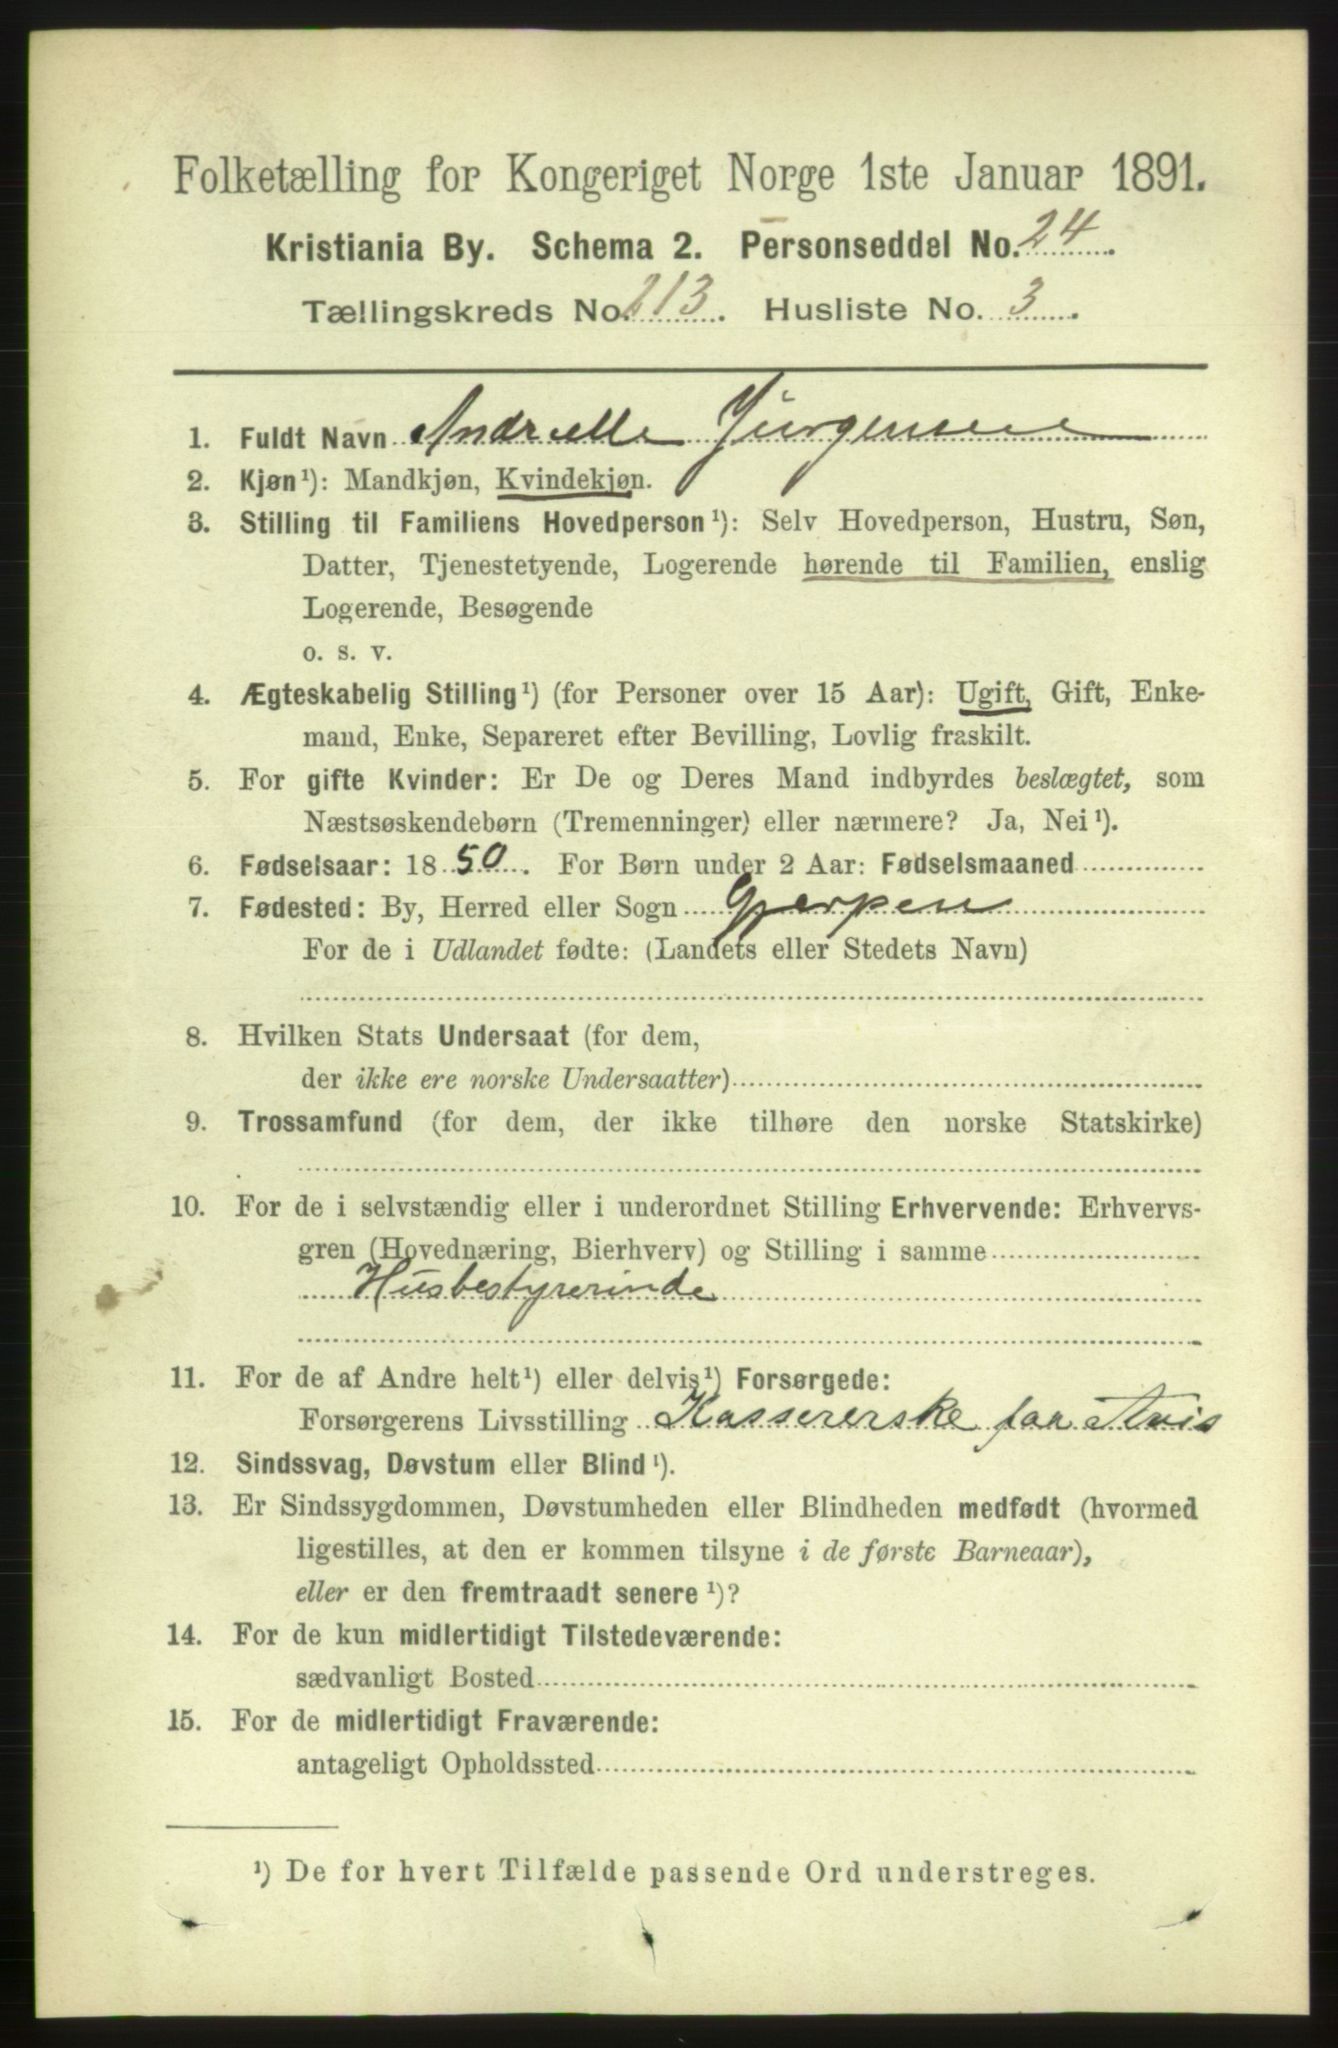 Folketælling for Kongeriget Norge 1ste Januar 1891.
Kristiania By. Schema 2. Personseddel No. 24.
Tællingskreds No. 213. Husliste No. 3.
1. Fuldt Navn Jürgensen
2. Kjøn¹): Mandkjøn, Kvindekjøn.
3. Stilling til Familiens Hovedperson¹): Selv Hovedperson, Hustru, Søn,
Datter, Tjenestetyende, Logerende hørende til Familien, enslig
Logerende, Besøgende
o. s. v.
4. Ægteskabelig Stilling¹) (for Personer over 15 Aar): Ugift, Gift, Enke-
mand, Enke, Separeret efter Bevilling, Lovlig fraskilt.
5. For gifte Kvinder: Er De og Deres Mand indbyrdes beslægtet, som
Næstsøskendebørn (Tremenninger) eller nærmere? Ja, Nei¹).
6. Fødselsaar: 1850. For Børn under 2 Aar: Fødselsmaaned
7. Fødested: By, Herred eller Sogn Gjerpen
For de i Udlandet fødte: (Landets eller Stedets Navn)
8. Hvilken Stats Undersaat (for dem,
der ikke ere norske Undersaatter)
9. Trossamfund (for dem, der ikke tilhøre den norske Statskirke)
10. For de i selvstændig eller i underordnet Stilling Erhvervende: Erhvervs-
gren (Hovednæring, Bierhverv) og Stilling i samme
Husbestyrerinde
11. For de af Andre helt¹) eller delvis¹) Forsørgede:
Forsørgerens Livsstilling Kassererske paa Avis
12. Sindssvag, Døvstum eller Blind¹).
13. Er Sindssygdommen, Døvstumheden eller Blindheden medfødt (hvormed
ligestilles, at den er kommen tilsyne i de første Barneaar),
eller er den fremtraadt senere¹)?
14. For de kun midlertidigt Tilstedeværende:
sædvanligt Bosted
15. For de midlertidigt Fraværende:
antageligt Opholdssted
¹) De for hvert Tilfælde passende Ord understreges.